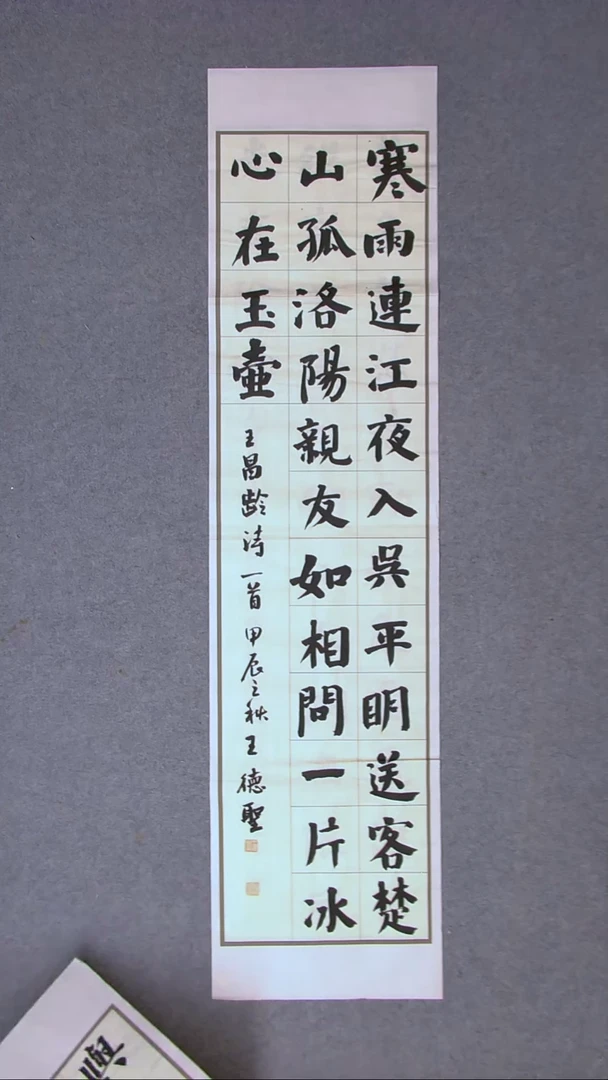 寒雨連江夜入吳平明送客楚
山孤洛陽親友如相問一片冰
心在玉壺
王昌齡詩一首甲辰之秋王德聖